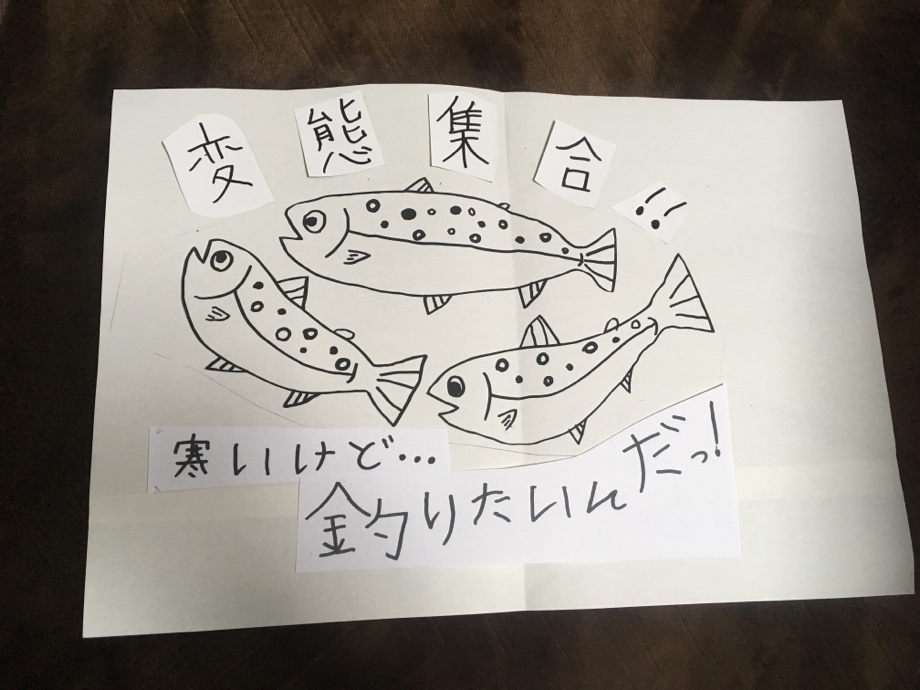 変態集合!!
寒いけど…
釣りたいんだっ!